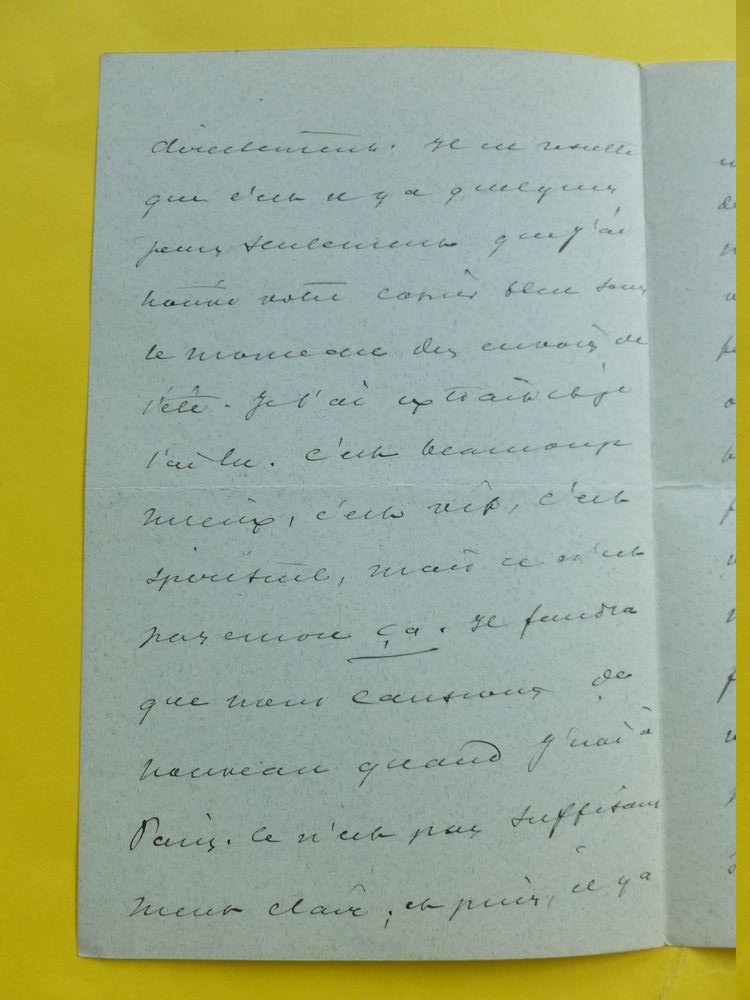 directement. Il en résulte
que c'est il y a quelques
jours seulement que j'ai
trouvé votre cahier bleu sous
le monceau des envois de
l'été. Je l'ai extrait et je
l'ai lu. C'est beaucoup
mieux, c'est vif, c'est
spirituel, mais ce n'est
pas encore ça. Il faudra
que nous causions de
nouveau quand j'irai à
Paris. Ce n'est pas suffisam
ment clair ; et puis, il y a